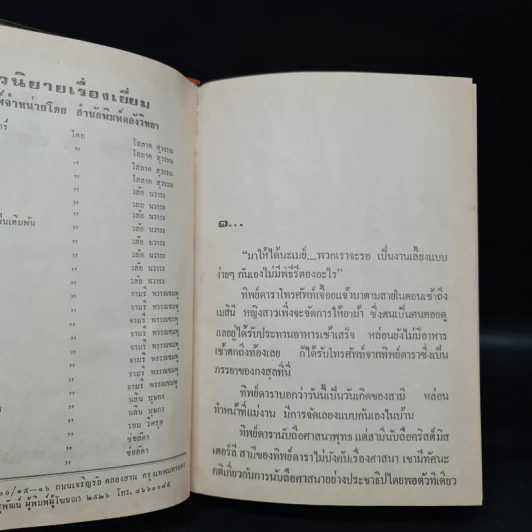 วนิยายเรื่องเยี่ยม
จำหน่ายโดย สำนักพิมพ์คลังวิทยา
โดย โสภาค สุวรรณ
" โสภาค สุวรรณ
" โสภาค สุวรรณ
" โสภาค สุวรรณ
" วลัย นวาระ
" วลัย นวาระ
" วลัย นวาระ
" วลัย นวาระ
" วลัย นวาระ
" วลัย นวาระ
" วลัย นวาระ
" จามรี พรรณชมพู
" จามรี พรรณชมพู
" จามรี พรรณชมพู
" จามรี พรรณชมพู
" จามรี พรรณชมพู
" นลิน บุษกร
" นลิน บุษกร
" ช่อลัดา
" ช่อลัดา
ถนนเจริญรัถ คลองสาน กรุงเทพมหานคร
ผู้พิมพ์ผู้โฆษณา ๒๕๒๖
๑...
"มาให้ได้นะเมย์....พวกเราจะรอ เป็นงานเลี้ยงแบบ
ง่ายๆ กันเองไม่มีพิธีรีตองอะไร"
ทิพย์ดาราโทรศัพท์เจื้อยแจ้วมาตามสายในตอนเช้าถึง
เมสินี หญิงสาวเพิ่งจะจัดการให้อาม้า ซึ่งตนเป็นคนคอยดู
แลอยู่ได้รับประทานอาหารเช้าเสร็จ หล่อนยังไม่มีอาหาร
เช้าตกถึงท้องเลย ก็ได้รับโทรศัพท์จากทิพย์ดาราซึ่งเป็น
ภรรยาของกงสุลที่นี่
ทิพย์ดาราบอกว่าวันนี้เป็นวันเกิดของสามี หล่อน
ทำหน้าที่แม่งาน มีการจัดเลี้ยงแบบกันเองในบ้าน
ทิพย์ดารานับถือศาสนาพุทธ แต่สามีนับถือคริสต์มิส
เตอร์ลี สามีของทิพย์ดาราไม่บังคับเรื่องศาสนา เขามีทัศนะ
คติเกี่ยวกับการนับถือศาสนาอย่างประชาธิปไตยพอตัวทีเดียว